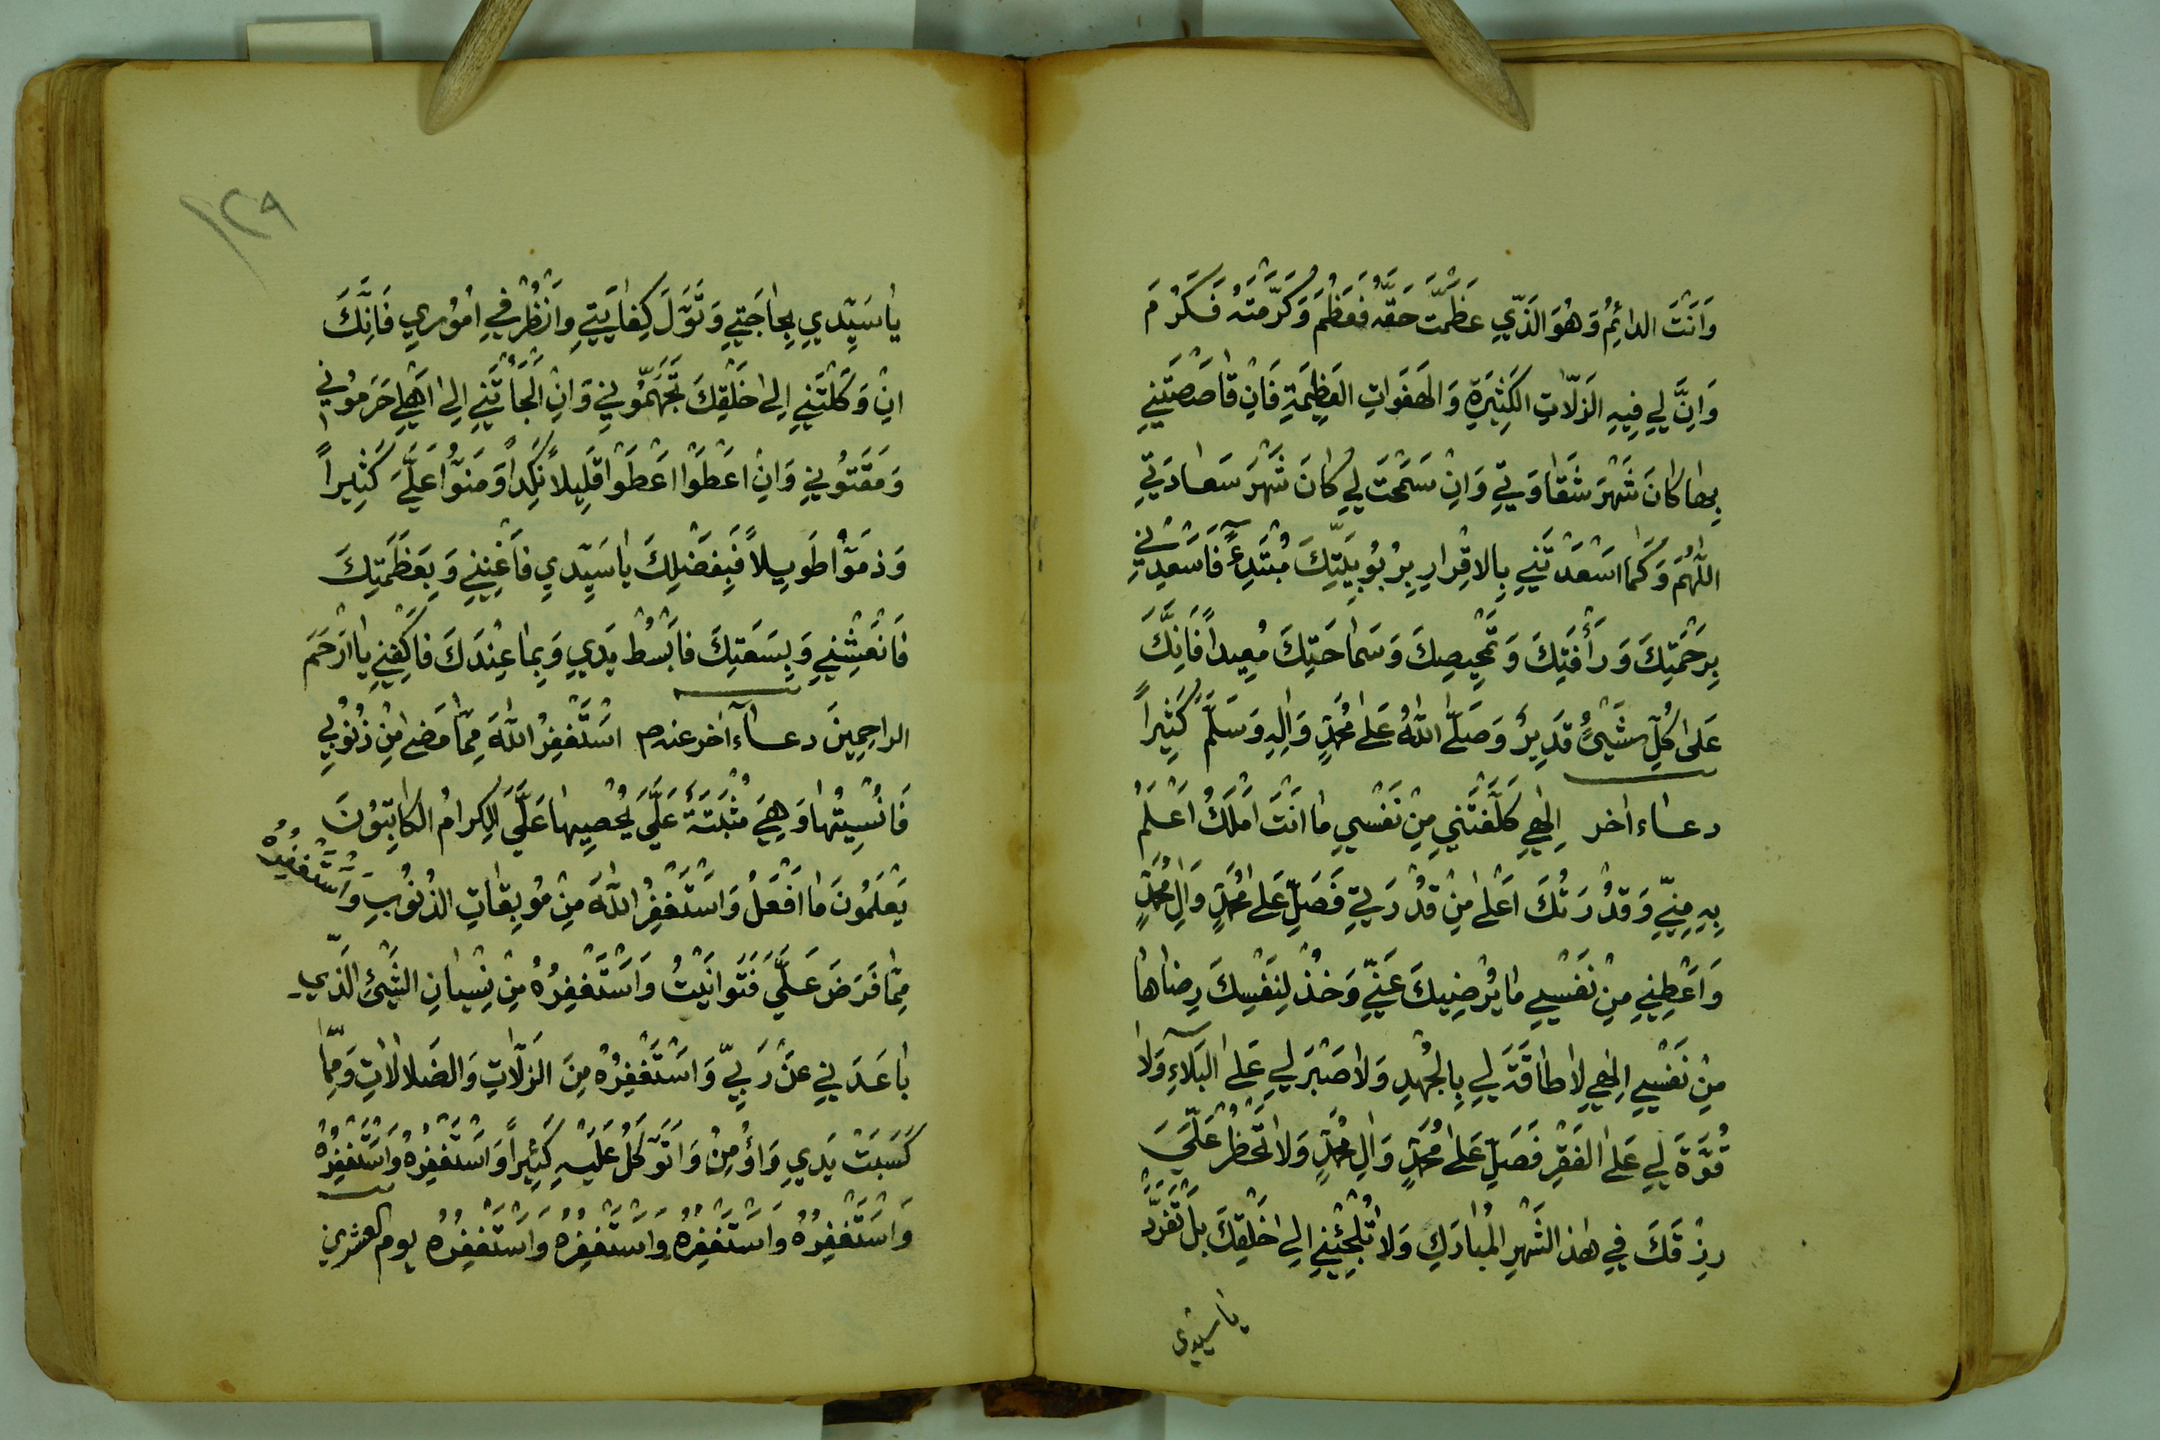 وَاَنْتَ الدائِمُ وَهُوَ الَّذي عَظَّمْتَ حَقَّهُ فَعَظُمَ وَكَرَّمْتَهُ فَكَرُمَ
وَاِنَّ لي فيهِ الزَلّاتِ الكَثِيرَةِ وَالهَفَواتِ العَظِيمَةِ فَاِنْ قاصَصْتَني
بِها كانَ شَهْرَ شَقاوَتي وَاِنْ سَمَحْتَ لي كانَ شَهْرَ سَعادَتي
اللّهُمَّ وَكَما اَسْعَدْتَني بِالاقْرارِ بِرُبُوبِيَّتِكَ مُبْتَدِءً فَاَسْعِدْني
بِرَحْمَتِكَ وَرَأْفَتِكَ وَتَمْحيصِكَ وَسَماحَتِكَ مُعيداً فَاِنَّكَ
عَلى كُلِّ شَيْئٍ قَديرٌ وَصَلَّى اللّهُ عَلى مُحَمَّدٍ وَالِهِ وَسَلَّمَ كَثيراً
دعاء اخر اِلهي كَلَّفْتَني مِنْ نَفْسي ما اَنْتَ اَمْلَكُ اَعْلَمُ
بِهِ مِنّي وَقُدْرَتُكَ اَعْلى مِنْ قُدْرَتي فَصَلِّ عَلى مُحَمَّدٍ وَالِ مُحَمَّدٍ
وَاَعْطِني مِنْ نَفْسي ما يُرْضيكَ عَنّي وَخُذْ لِنَفْسِكَ رِضاها
مِنْ نَفْسي اِلهي لا طاقَةَ لي بِالجُهْدِ وَلا صَبْرَ لي عَلى البَلاءِ وَلا
قُوَّةَ لي عَلى الفَقْرِ فَصَلِّ عَلى مُحَمَّدٍ وَالِ مُحَمَّدٍ وَلا تَحْظُرْ عَلَيَّ
رِزْقَكَ في هذا الشَهْرِ المُبارَكِ وَلا تُلْجِئْني اِلى خَلْقِكَ بَلْ تَفَرَّدْ
يا سيدي
١٢٩
يا سَيِّدي بِحاجَتي وَتَوَلَّ كِفايَتي وَانْظُرْ في اُمُوري فَاِنَّكَ
اِنْ وَكَلْتَني اِلى خَلْقِكَ تَجَهَّمُوني وَاِنْ اَلْجَأْتَني اِلى اَهْلي حَرَمُوني
وَمَقَتُوني وَاِنْ اَعْطَوْا اَعْطَوْا قَليلاً نَكِداً وَمَنُّوا عَلَيَّ كَثيراً
وَذَمُّوا طَويلاً فَبِفَضْلِكَ يا سَيِّدي فَاَغْنِني وَبِعَظَمَتِكَ
فَانْعَشْني وَبِسَعَتِكَ فَابْسُطْ يَدي وَبِما عِنْدَكَ فَاكْفِني يا اَرْحَمَ
الراحِمينَ دعاء اخر عندم اَسْتَغْفِرُ اللّهَ مِمّا مَضى مِنْ ذُنُوبي
فَاُنْسيتُها وَهِيَ مُثْبَتَةٌ عَلَيَّ يُحْصيها عَلَيَّ الكِرامُ الكاتِبُونَ
يَعْلَمُونَ ما اَفْعَلُ وَاَسْتَغْفِرُ اللّهَ مِنْ مُوبِقاتِ الذُنُوبِ وَاَسْتَغْفِرُهُ
مِمّا فَرَضَ عَلَيَّ فَتَوانَيْتُ وَاَسْتَغْفِرُهُ مِنْ نِسْيانِ الشَيْئِ الَّذي
باعَدَني عَنْ رَبّي وَاَسْتَغْفِرُهُ مِنَ الزَلّاتِ وَالضَلالاتِ وَمِمّا
كَسَبَتْ يَدي وَاُؤْمِنُ وَاَتَوَكَّلُ عَلَيْهِ كَثيراً وَاَسْتَغْفِرُهُ وَاَسْتَغْفِرُهُ
وَاَسْتَغْفِرُهُ وَاَسْتَغْفِرُهُ وَاَسْتَغْفِرُهُ وَاَسْتَغْفِرُهُ يوم العشرين